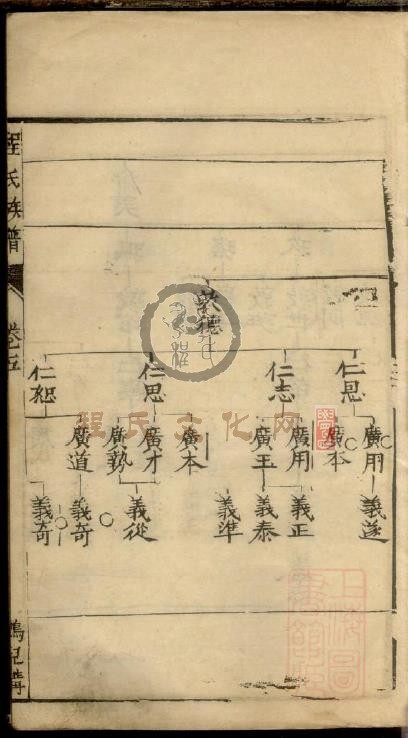 程氏族譜
卷五
德
仁恩
仁志
仁思
仁恕
廣用
廣本
廣用
廣玉
廣本
廣才
廣勢
廣道
義遂
義正
義泰
義準
義從
義奇
義奇
程氏文化网
上海圖